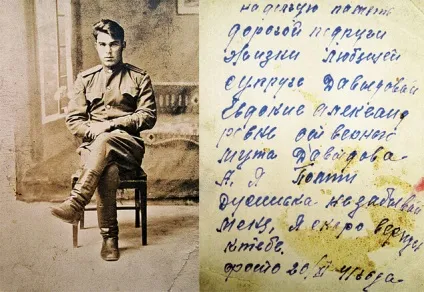 на долгую память
дорогой подруги
жизни любящей
супруге Давыдовой
Евдокие Александ
ровне от верного
мужа Давыдова
А. Я Помни
дусинька не забывай
меня, я скоро вернусь
к тебе.
фото 20/VI 41 года.